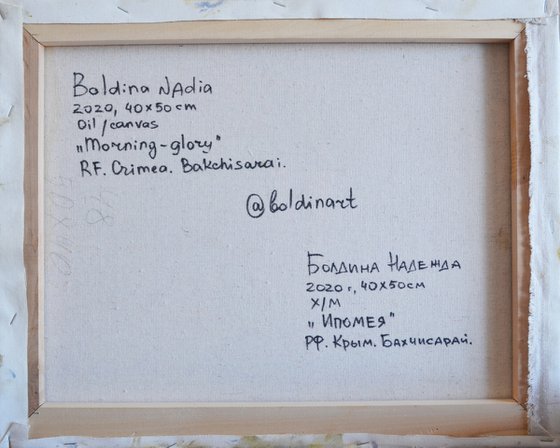 Boldina NAdia
2020, 40x50cm
Oil/canvas
„Morning-glory"
RF. Crimea. Bakchisarai.
@boldinart
Болдина Надежда
2020 г, 40х50см
Х/М
„Ипомея"
РФ. Крым. Бахчисарай.